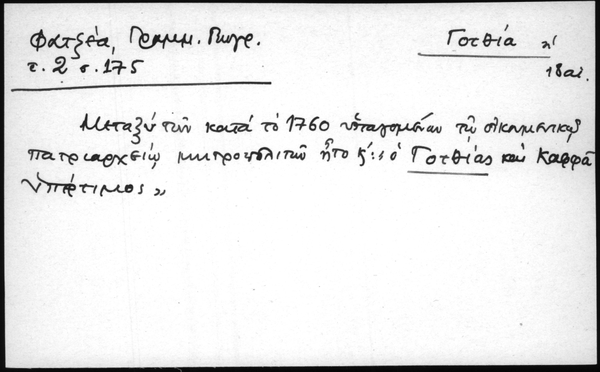 Φατζέα, Γραμμ. Γεωγρ.
Γοτθία
τ. 2 σ. 175
Μεταξύ τῶν κατά τό 1760 ὑπαγομένων τῷ οἰκουμενικῷ
πατριαρχείῳ μητροπολιτῶν ἦτο ὁ Γοτθίας καί Καφφᾶ
ὑπέρτιμος»